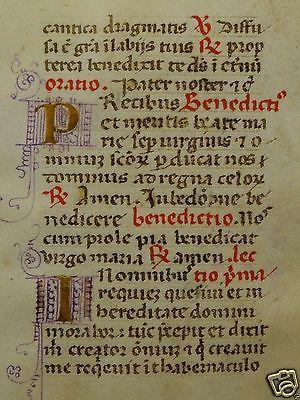 cantica dragmatis V Diffu
sa ē grā ī labijs tuis R prop
terea benedixit te ds ī etnū
oratio. Pater noster et q̄
Precibus Benedictiō
et meritis beate ma
rie sēp virginis et o
mniuȝ scōr perducat nos
dominus ad regna celor
R Amen. Jube dōpne be
nedicere benedictio. Nos
cum prole pia benedicat
virgo maria R amen. lec
In omnibus tio p̄ma
requieȝ quesiui et in
hereditate domini
morabor: tūc precepit et dixit
m̄ creator ōniuȝ et qui creauit
me requieuit ī tabernaculo